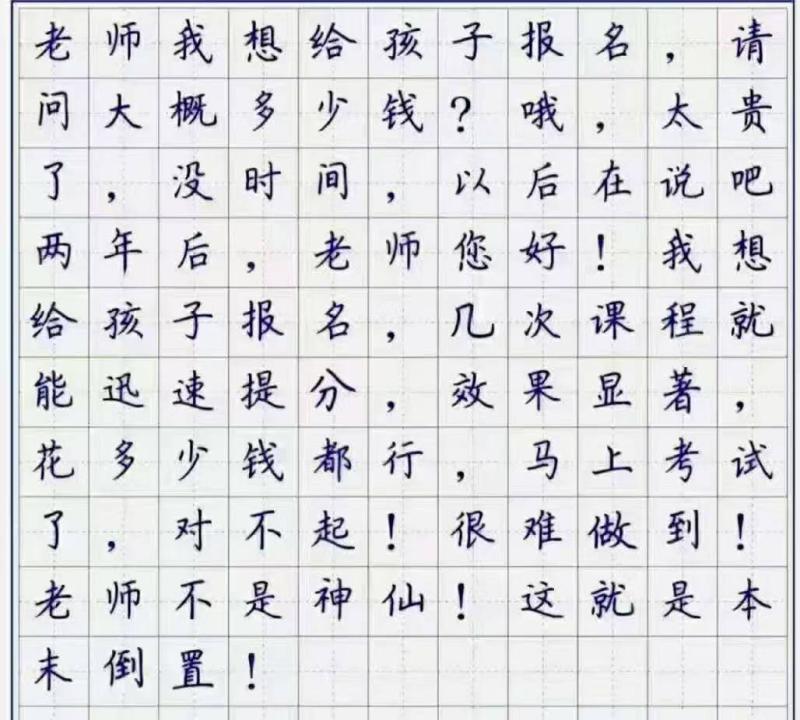 老师我想给孩子报名，请
问大概多少钱？哦，太贵
了，没时间，以后在说吧
两年后，老师您好！我想
给孩子报名，几次课程就
能迅速提分，效果显著，
花多少钱都行，马上考试
了，对不起！很难做到！
老师不是神仙！这就是本
末倒置！